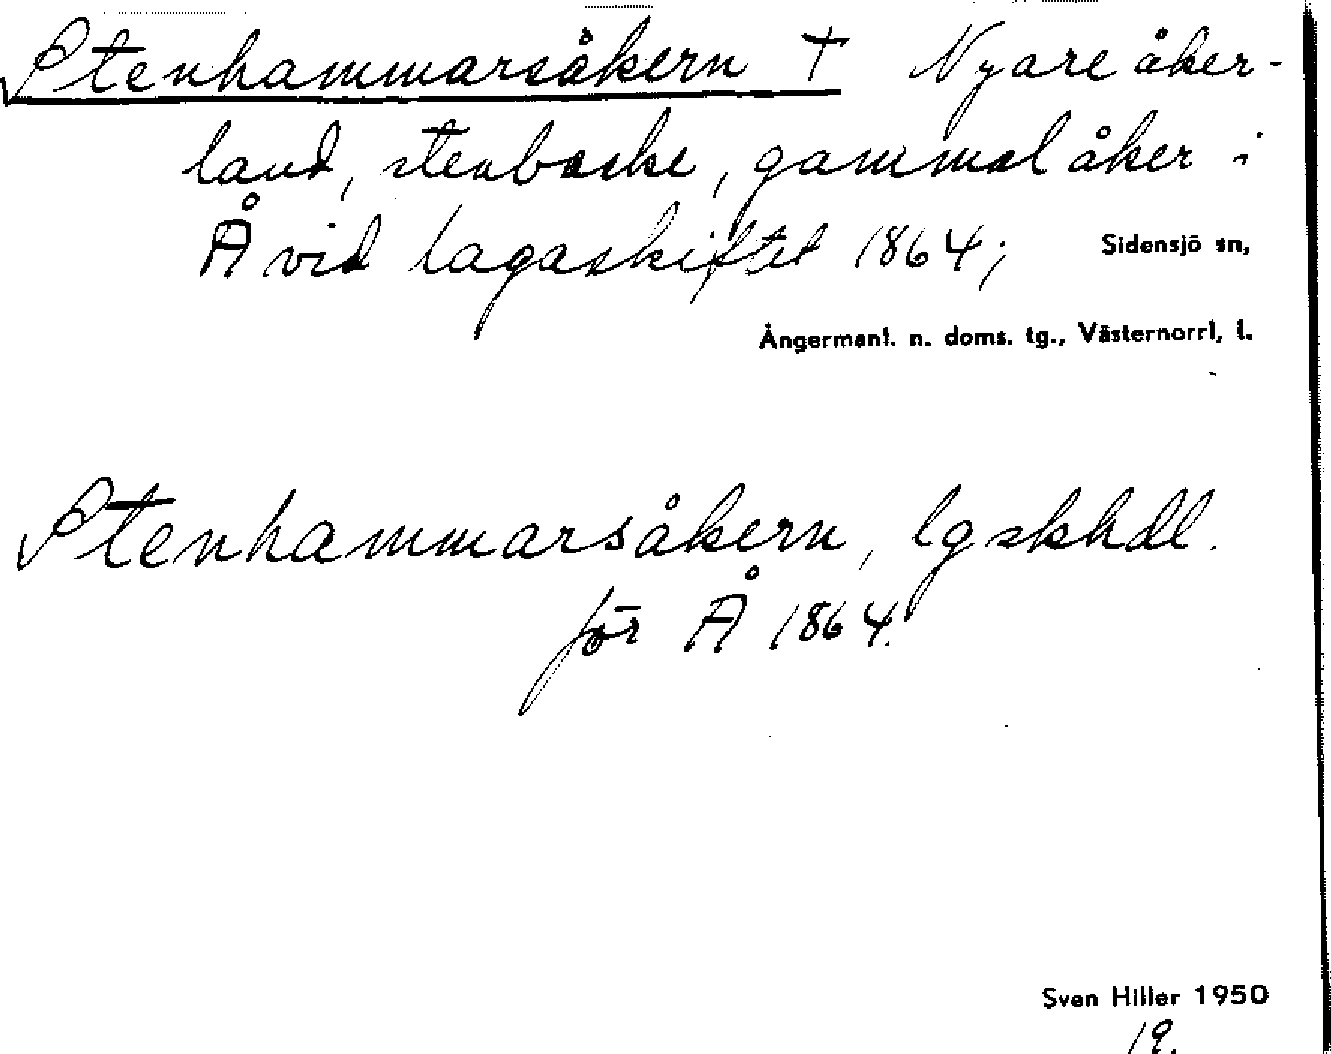 Stenhammarsåkern † Nyare åker-
land, stenbacke, gammal åker i
Å vid lagaskiftet 1864; Sidensjö sn,
Ångermanl. n. doms. tg., Västernorrl. l.
Stenhammarsåkern, lgskhdl.
för Å 1864.
Sven Hiller 1950
19.